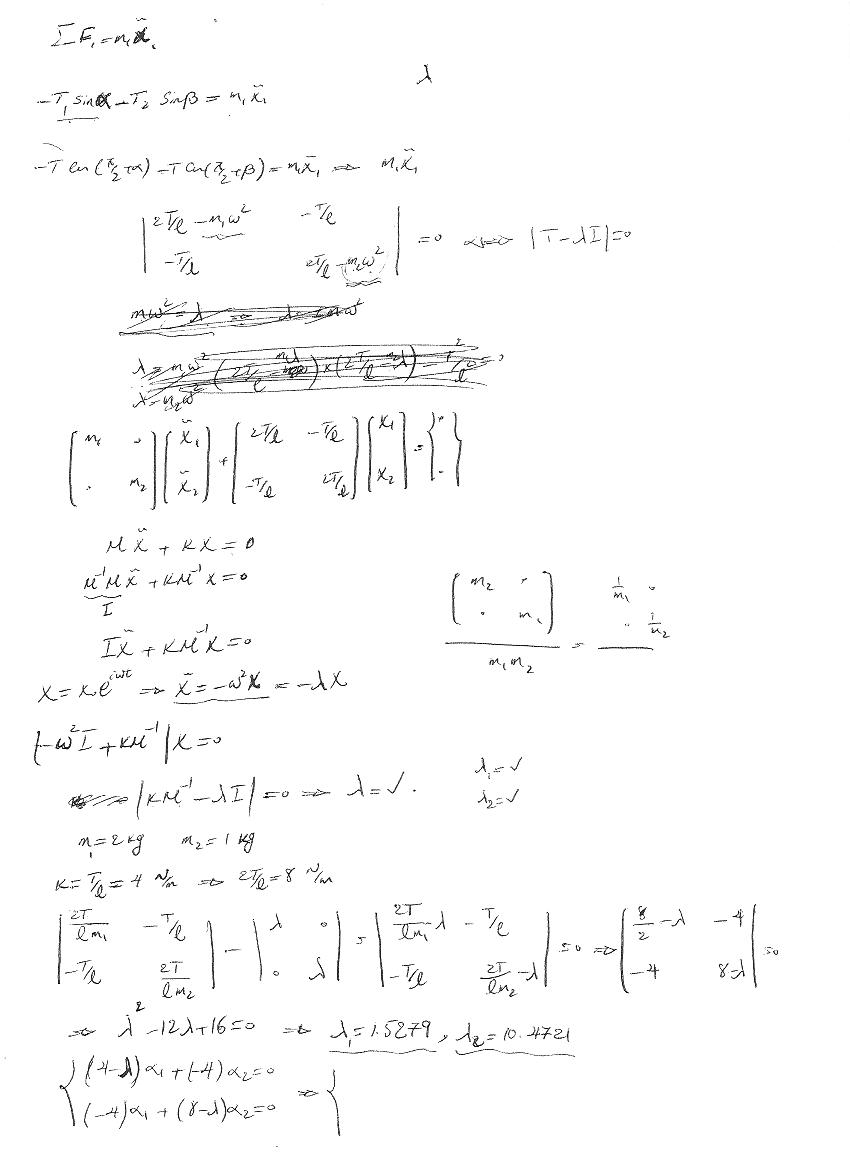 ΣF₁ = m₁ẍ₁
λ
-T₁ sinα - T₂ sinβ = m₁ẍ₁
-T cos(π/2+α) - T cos(π/2+β) = m₁ẍ₁ ⇒ m₁ẍ₁
| 2T/l - m₁ω² -T/l |
| -T/l 2T/l - m₂ω² | = 0 ⇔ |T-λI| = 0
[m₁ 0; 0 m₂] [ẍ₁; ẍ₂] + [2T/l -T/l; -T/l 2T/l] [x₁; x₂] = {0; 0}
Mẍ + Kx = 0
M⁻¹Mẍ + KM⁻¹x = 0
I
[m₂ 0; 0 m₁] / m₁m₂ = 1/m₁ 0; 0 1/m₂
Iẍ + KM⁻¹x = 0
x = x₀e^{iωt} ⇒ ẍ = -ω²x = -λx
|-ω²I + KM⁻¹| x = 0
|KM⁻¹ - λI| = 0 ⇒ λ = ✓.
λ₁ = ✓
λ₂ = ✓
m₁ = 2 kg m₂ = 1 kg
K = T/l = 4 N/m ⇒ 2T/l = 8 N/m
| 2T/lm₁ -T/l; -T/l 2T/lm₂ | - | λ 0; 0 λ | = | 2T/lm₁ λ -T/l; -T/l 2T/lm₂ -λ | = 0 ⇒ | 8/2 -λ -4; -4 8-λ | = 0
⇒ λ² - 12λ + 16 = 0 ⇒ λ₁ = 1.5279, λ₂ = 10.4721
{ (4-λ)α₁ + (-4)α₂ = 0
(-4)α₁ + (8-λ)α₂ = 0 ⇒ {